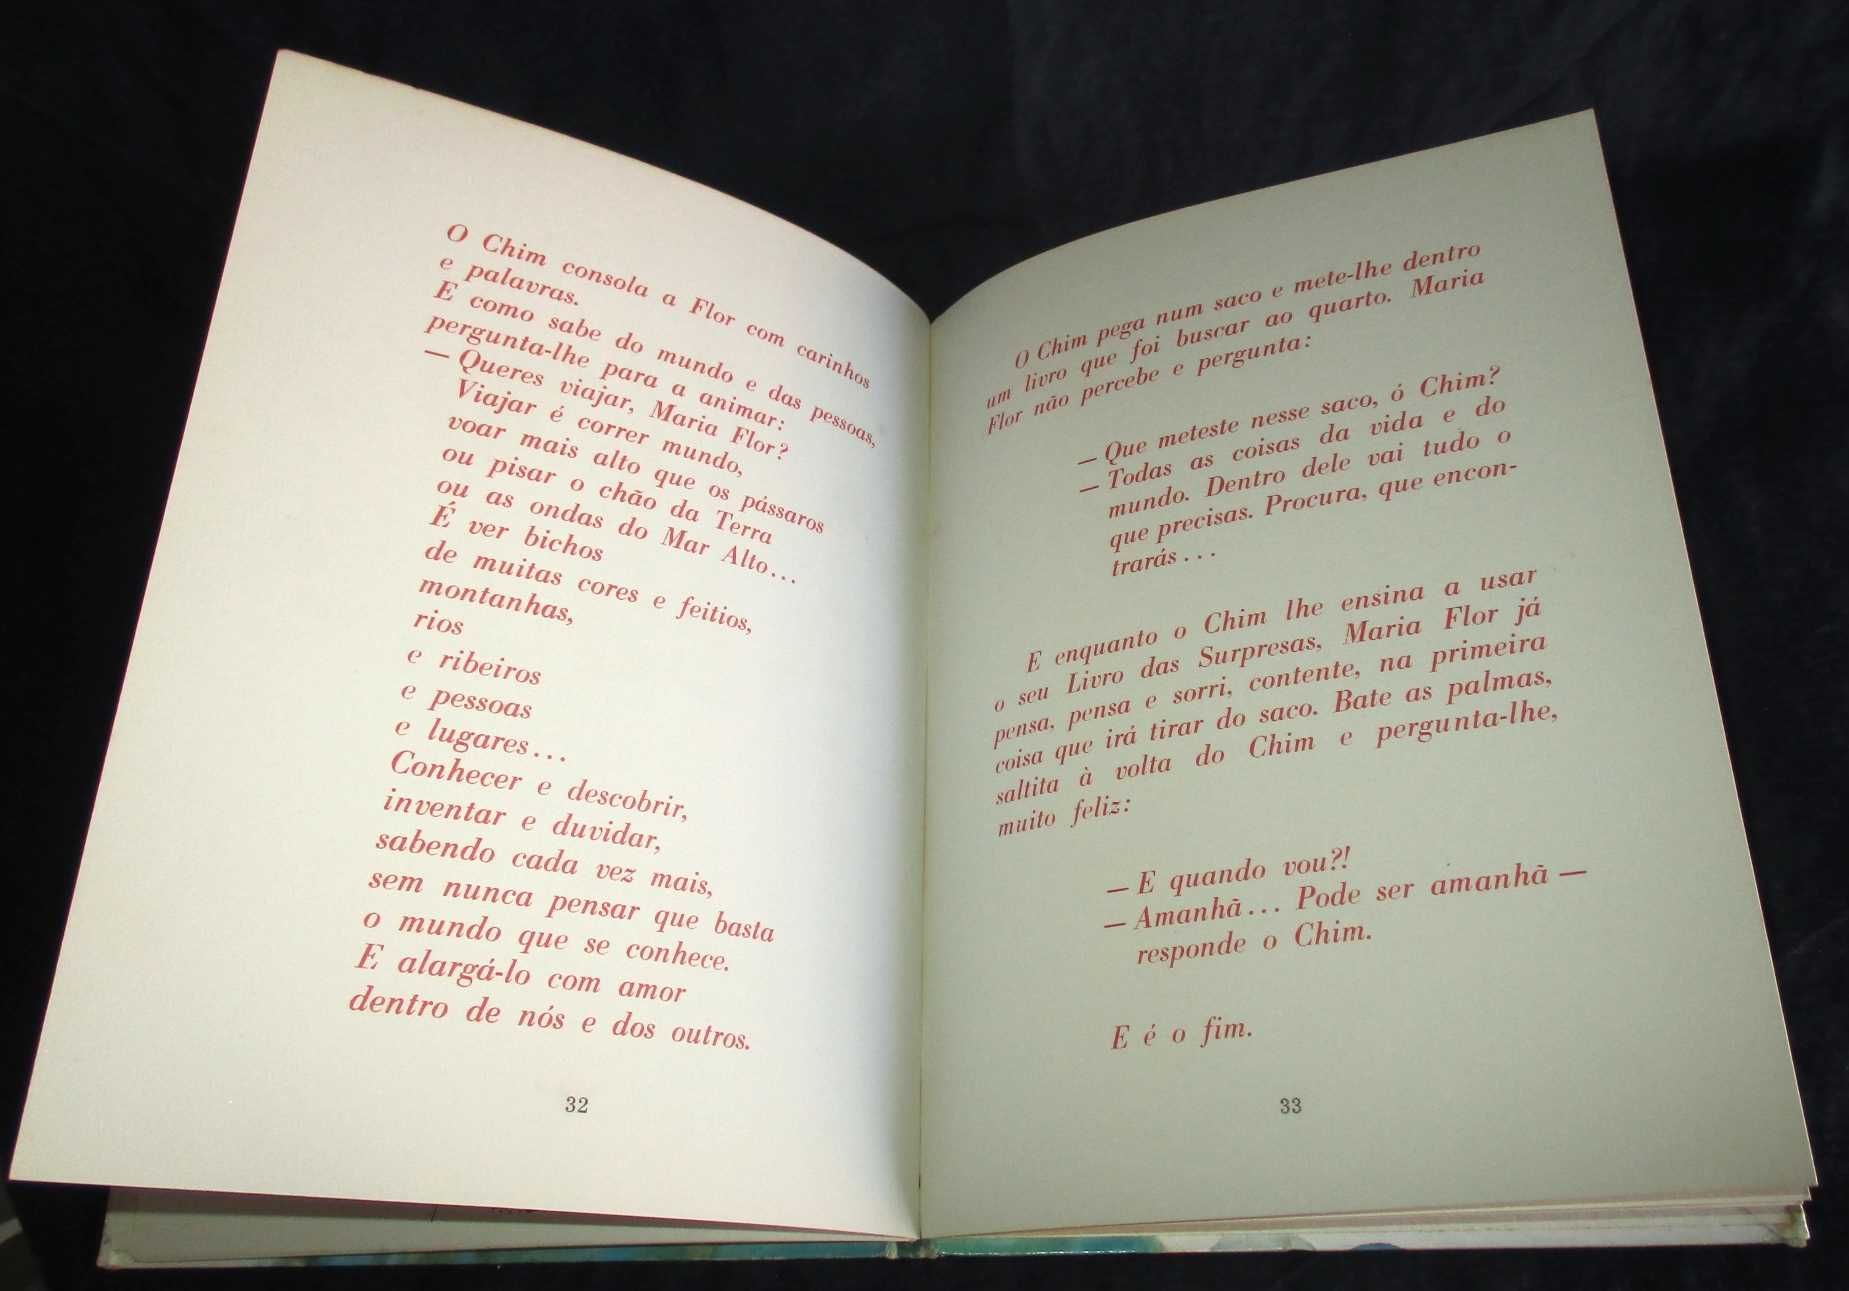 O Chim consola a Flor com carinhos
e palavras.
E como sabe do mundo e das pessoas,
pergunta-lhe para a animar:
— Queres viajar, Maria Flor?
Viajar é correr mundo,
voar mais alto que os pássaros
ou pisar o chão da Terra
ou as ondas do Mar Alto...
É ver bichos
de muitas cores e feitios,
montanhas,
rios
e ribeiros
e pessoas
e lugares...
Conhecer e descobrir,
inventar e duvidar,
sabendo cada vez mais,
sem nunca pensar que basta
o mundo que se conhece.
E alargá-lo com amor
dentro de nós e dos outros.
32
O Chim pega num saco e mete-lhe dentro
um livro que foi buscar ao quarto. Maria
Flor não percebe e pergunta:
— Que meteste nesse saco, ó Chim?
— Todas as coisas da vida e do
mundo. Dentro dele vai tudo o
que precisas. Procura, que encon-
trarás...
E enquanto o Chim lhe ensina a usar
o seu Livro das Surpresas, Maria Flor já
pensa, pensa e sorri, contente, na primeira
coisa que irá tirar do saco. Bate as palmas,
saltita à volta do Chim e pergunta-lhe,
muito feliz:
— E quando vou?!
— Amanhã... Pode ser amanhã —
responde o Chim.
E é o fim.
33